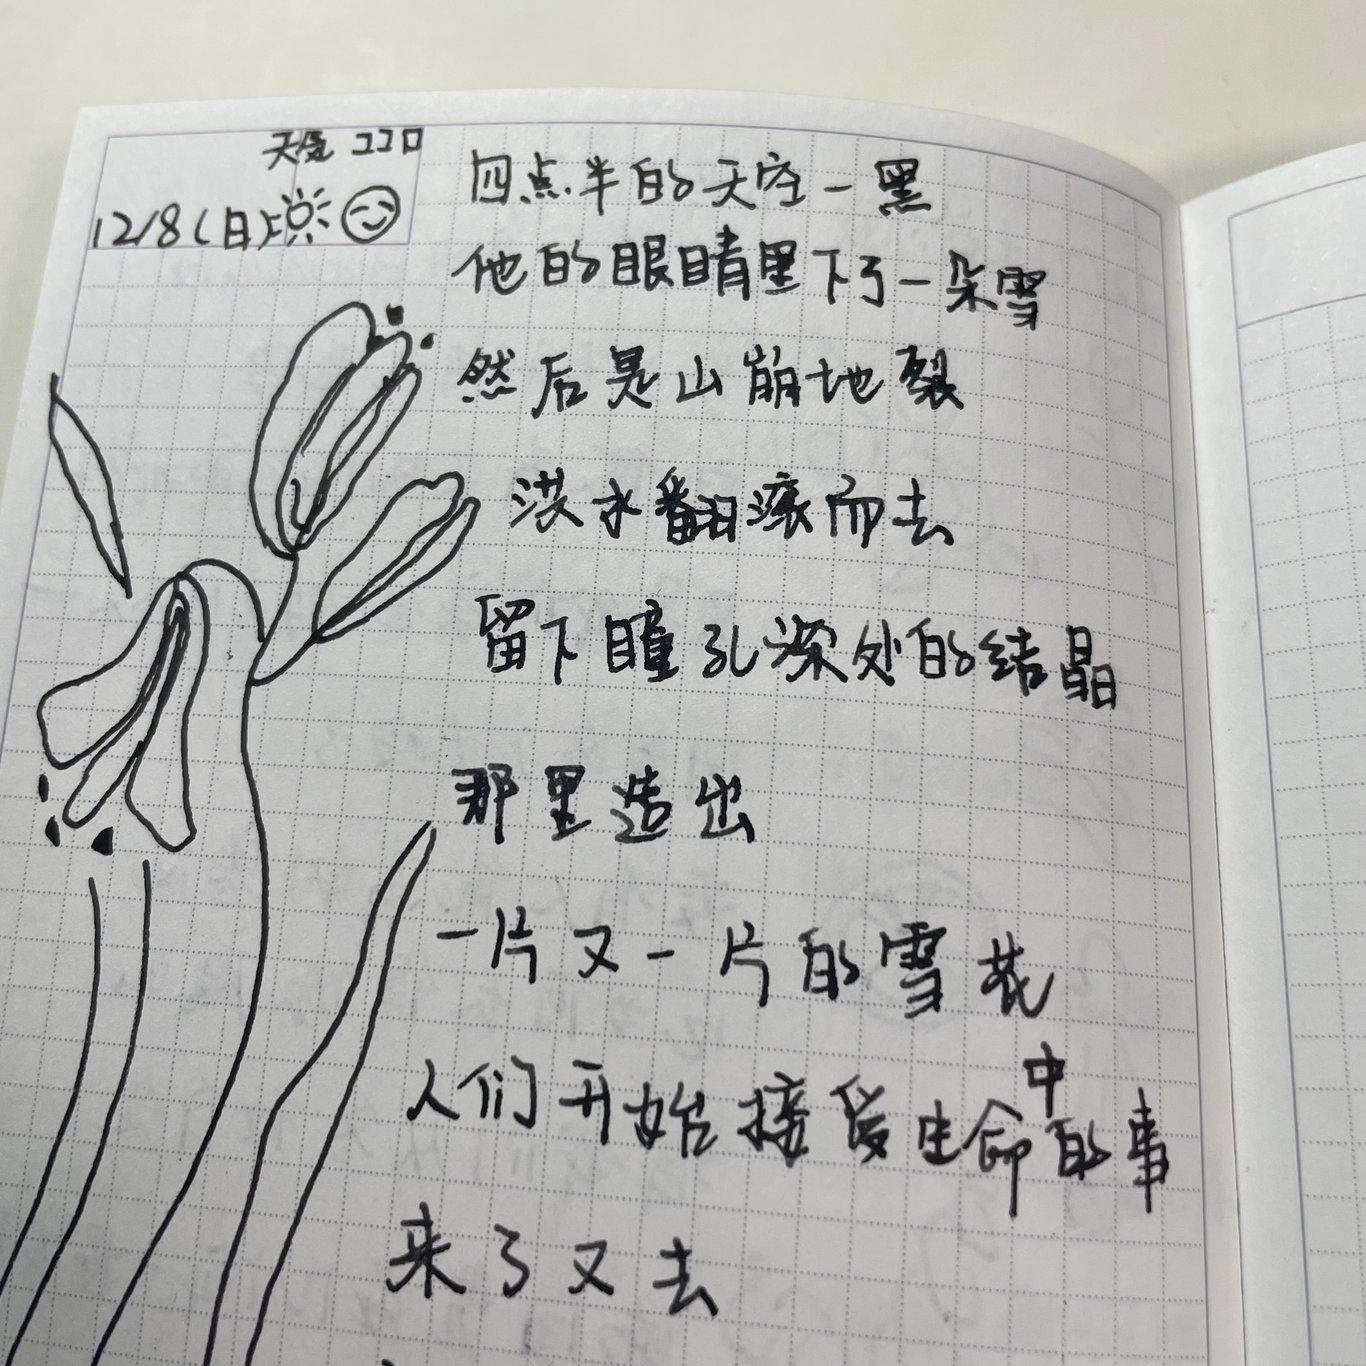 天気 ココロ
12/8(日)
四点半的天空一黑
他的眼睛里下了一朵雪
然后是山崩地裂
洪水翻滚而去
留下瞳孔深处的结晶
那里造出
一片又一片的雪花
人们开始接受生命中的事
来了又去